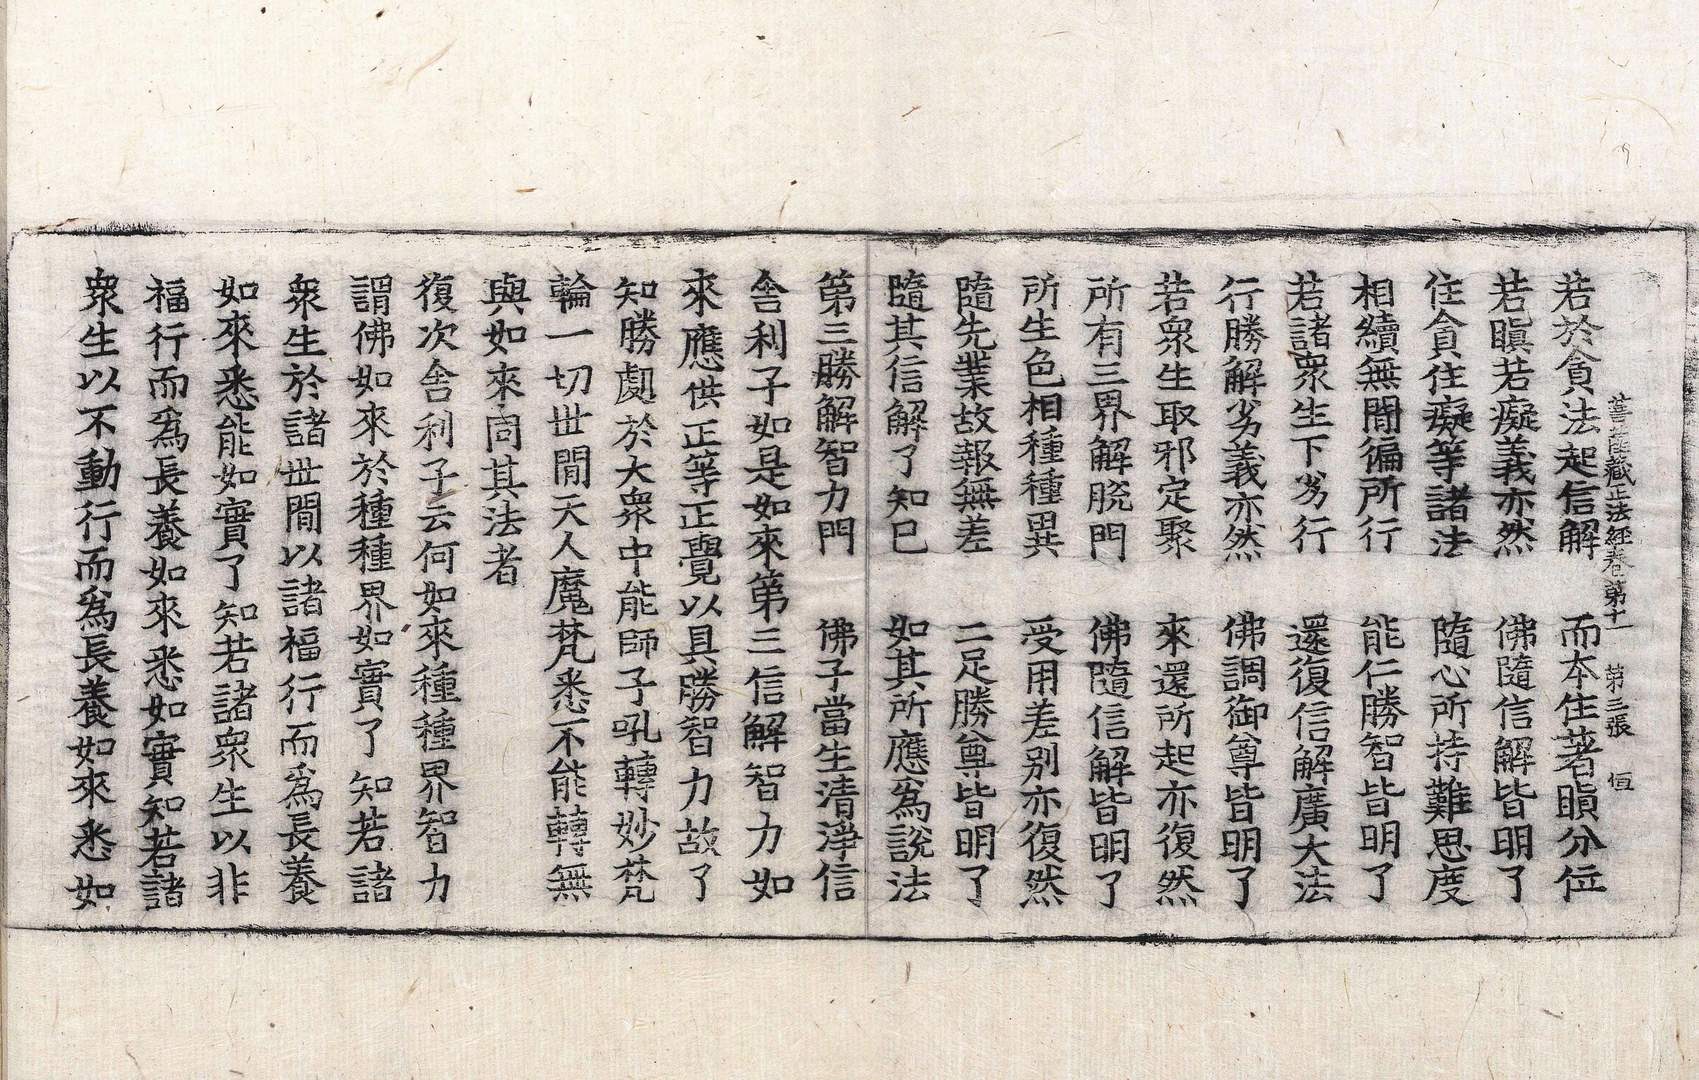 菩薩藏正法經卷第十一 第三張 恒
若於貪法起信解 而本住著瞋分位
若瞋若癡義亦然 佛隨信解皆明了
住貪住癡等諸法 隨心所持難思度
相續無間徧所行 能仁勝智皆明了
若諸衆生下劣行 還復信解廣大法
行勝解劣義亦然 佛調御尊皆明了
若衆生取邪定聚 來還所起亦復然
所有三界解脫門 佛隨信解皆明了
所生色相種種異 受用差别亦復然
隨先業故報無差 二足勝尊皆明了
隨其信解了知已 如其所應爲說法
第三勝解智力門 佛子當生清淨信
舍利子如是如來第三信解智力如
來應供正等正覺以具勝智力故了
知勝劇於大衆中能師子吼轉妙梵
輪一切世間天人魔梵悉不能轉無
與如來同其法者
復次舍利子云何如來種種界智力
謂佛如來於種種界如實了知若諸
衆生於諸世間以諸福行而爲長養
如來悉能如實了知若諸衆生以非
福行而爲長養如來悉如實知若諸
衆生以不動行而爲長養如來悉如